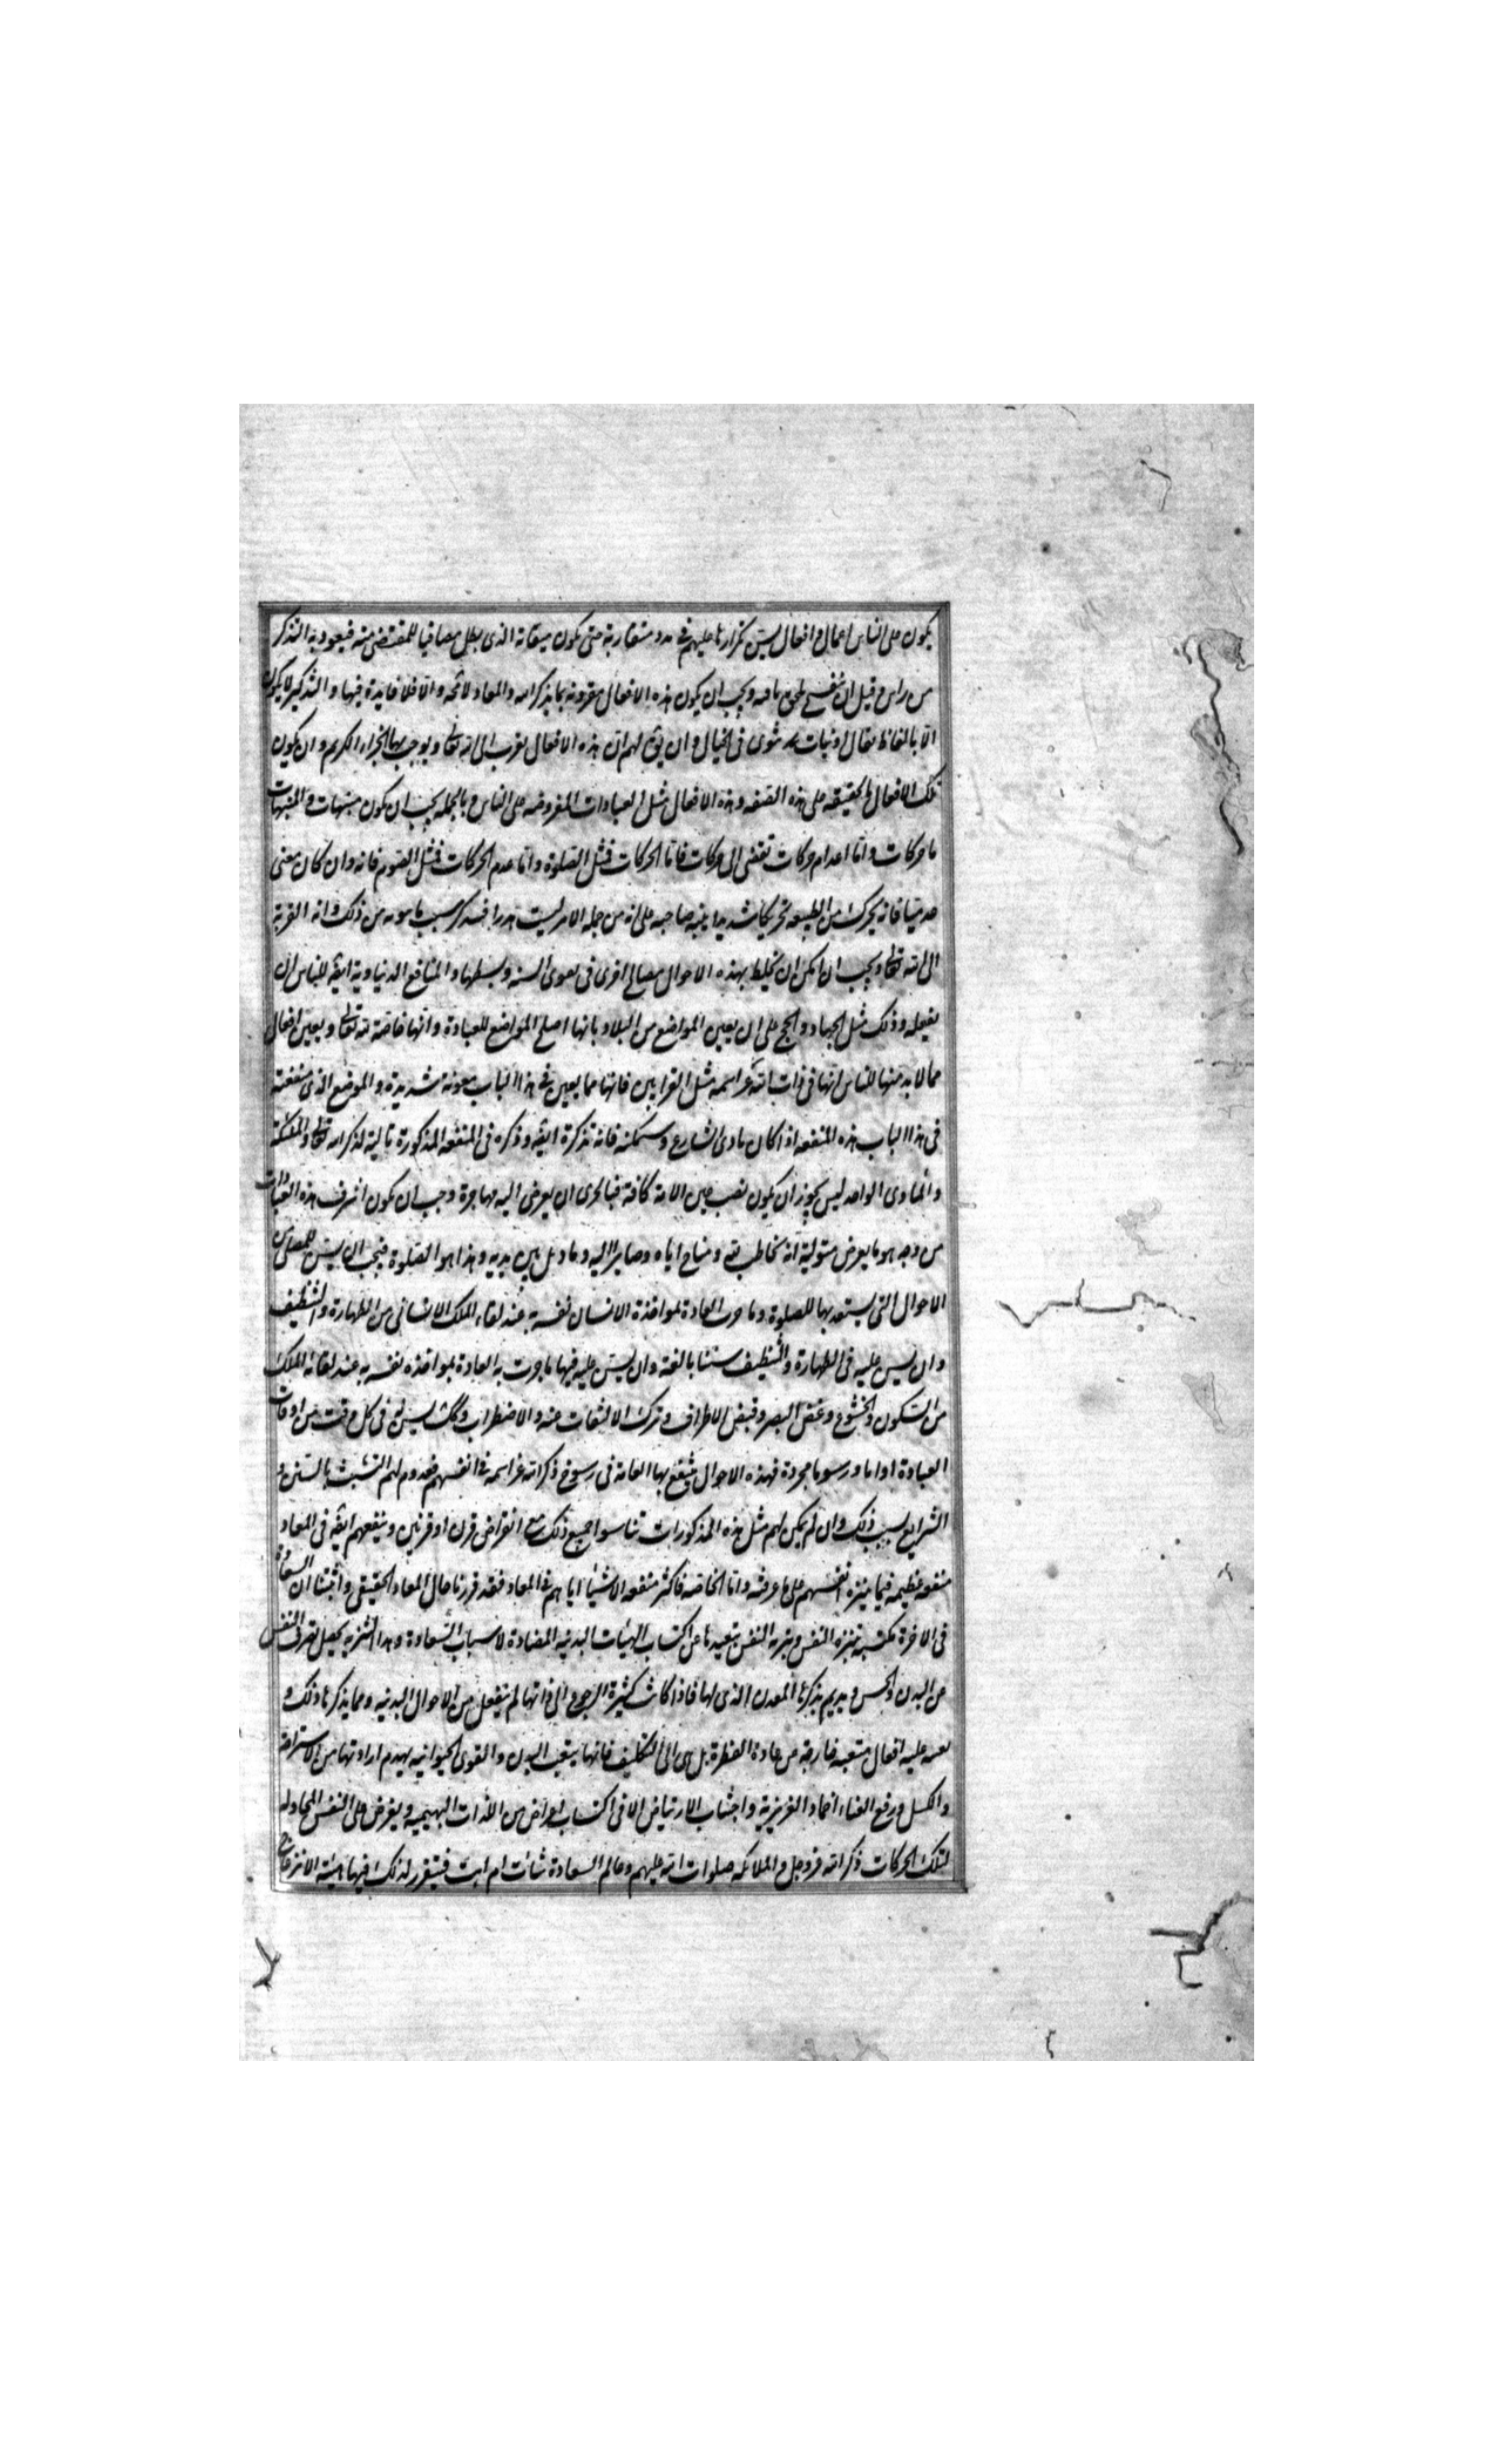 يكون على الناس اعمال و افعال يسنّ تكرارها عليهم فى مدد متقاربة حتى يكون ميقاته الذى بطل مصاقبا للمقتضى منه فيعود به التذكر
من راس و قبل ان ينفسخ يلحق عاقبه و يجب ان يكون هذه الافعال مقرونة بما يذكر الله و المعاد لا محه و الّا فلا فايدة فيها و التذكير لا يكون
الّا بالفاظ تقال او نيات تنوى فى الخيال و ان يقٯ لهم ان هذه الافعال تقرب الى الله تعا و يوجب بها الجزاء الكريم و ان يكون
تلك الافعال بالحقيقه على هذه الصفه و هذه الافعال مثل العبادات المفروضه على الناس و بالجمله يجب ان يكون منبهات و المنبهات
اما حركات و امّا اعدام حركات تفضى الى حركات فامّا الحركات فمثل الصلوة و امّا عدم الحركات فمثل الصوم فانه و ان كان معنى
عدميّا فانه يحرك من الطبيعه تحريكا شديدا ينبه صاحبه على انه من جملة الامر ليست هدرا فيتذكر سبب ما ينويه من ذلك و انه القربة
الى الله تعا و يجب ان امكن ان يخلط بهذه الاحوال مصالح اخرى فى تقوى السنه و بسطها و المنافع الدنياوية ايضٯ للناس ان
يفعله و ذلك مثل الجهاد و الحج على ان يعين المواضع من البلاد بانها اصلح المواضع للعبادة و انها خاصّة لله تعا و يعين افعال
مما لا بد منها للناس انها فى ذات الله عز اسمه مثل القرابين فانها مما يعين فى هذا الباب معونة شديدة و الموضع الذى منفعته
فى هذا الباب هذه المنفعه اذا كان ماوى الشارع و مسكنه فانه تذكرة ايضٯ و ذكره فى المنفعة المذكورة تالية لذكر الله تعا و الملئكة
و الماوى الواحد ليس يجوز ان يكون نصب عين الامة كافة فبالحرى ان يعرض اليه مهاجرة و يجب ان يكون اشرف هذه العبادات
من وجه هو ما يعرض متوليه انه مخاطب لله و مناج اياه و صاير اليه و ماثل بين يديه و هذا هو الصلوة فيجب ان يسنّ للمصلى من
الاحوال التى يستعد بها للصلوة و ما جرت العادة لمواخذة الانسان نفسه به عند لقاء الملك الانسانى من الطهارة و التنظيف
و ان يسن عليه فى الطهارة و التنظيف سننا بالغة و ان يسنّ عليه فيها ما جرت به العادة بمواخذه نفسه به عند لقائه الملك
من السكون و الخشوع و غضّ البصر و قبض الاطراف و ترك الالتفات عنه و الاضطراب و كك يسن له فى كل وقت من اوقات
العبادة ادابا و رسوما مجردة فهذه الاحوال ينتفع بها العامة فى رسوخ ذكر الله عز اسمه فى انفسهم فيدوم لهم التشبث بالسنن و
الشرايع بسبب ذلك و ان لم يكن لهم مثل هذه المذكورات تناسوا جميع ذلك مع انقراض قرن او قرنين و ينفعهم ايضٯ فى المعاد
منفعه عظيمه فيما ينزه انفسهم على ما عرفته و امّا الخاصه فاكثر منفعه الاشياء اياهم فى المعاد فقد قررنا حال المعاد الحقيقى و اثبتنا ان السعادة
فى الاخرة مكتسبه بتنزه النفس و تنزيه النفس تبعيدها عن اكتساب الهيئات البدنيه المضادة لاسباب السعادة و هذا التنزيه يحصل
عن البدن و الحس و يديم تذكرها المعدن الذى لها فاذا كانت كثيرة الرجوع الى ذاتها لم ينفعل من الاحوال البدنيه و مما يذكرها ذلك و
يعينها عليه افعال متعبه خارجه عن عادة الفطرة بل هى الى التكليف فانها يتعب البدن و القوى الحيوانيه يهدم ارادتها من الاستراحة
و الكسل و رفع العناء و اخماد الغريزية و اجتناب الارتياض الا فى اكتساب اعراض من اللذات البهيميه و يفرض على النفس المحاوله
لتلك الحركات ذكر الله عز و جل و الملائكه صلوات الله عليهم و عالم السعادة شاءت ام ابت فيتقرر لذلك فيها هيئة الانزعاج